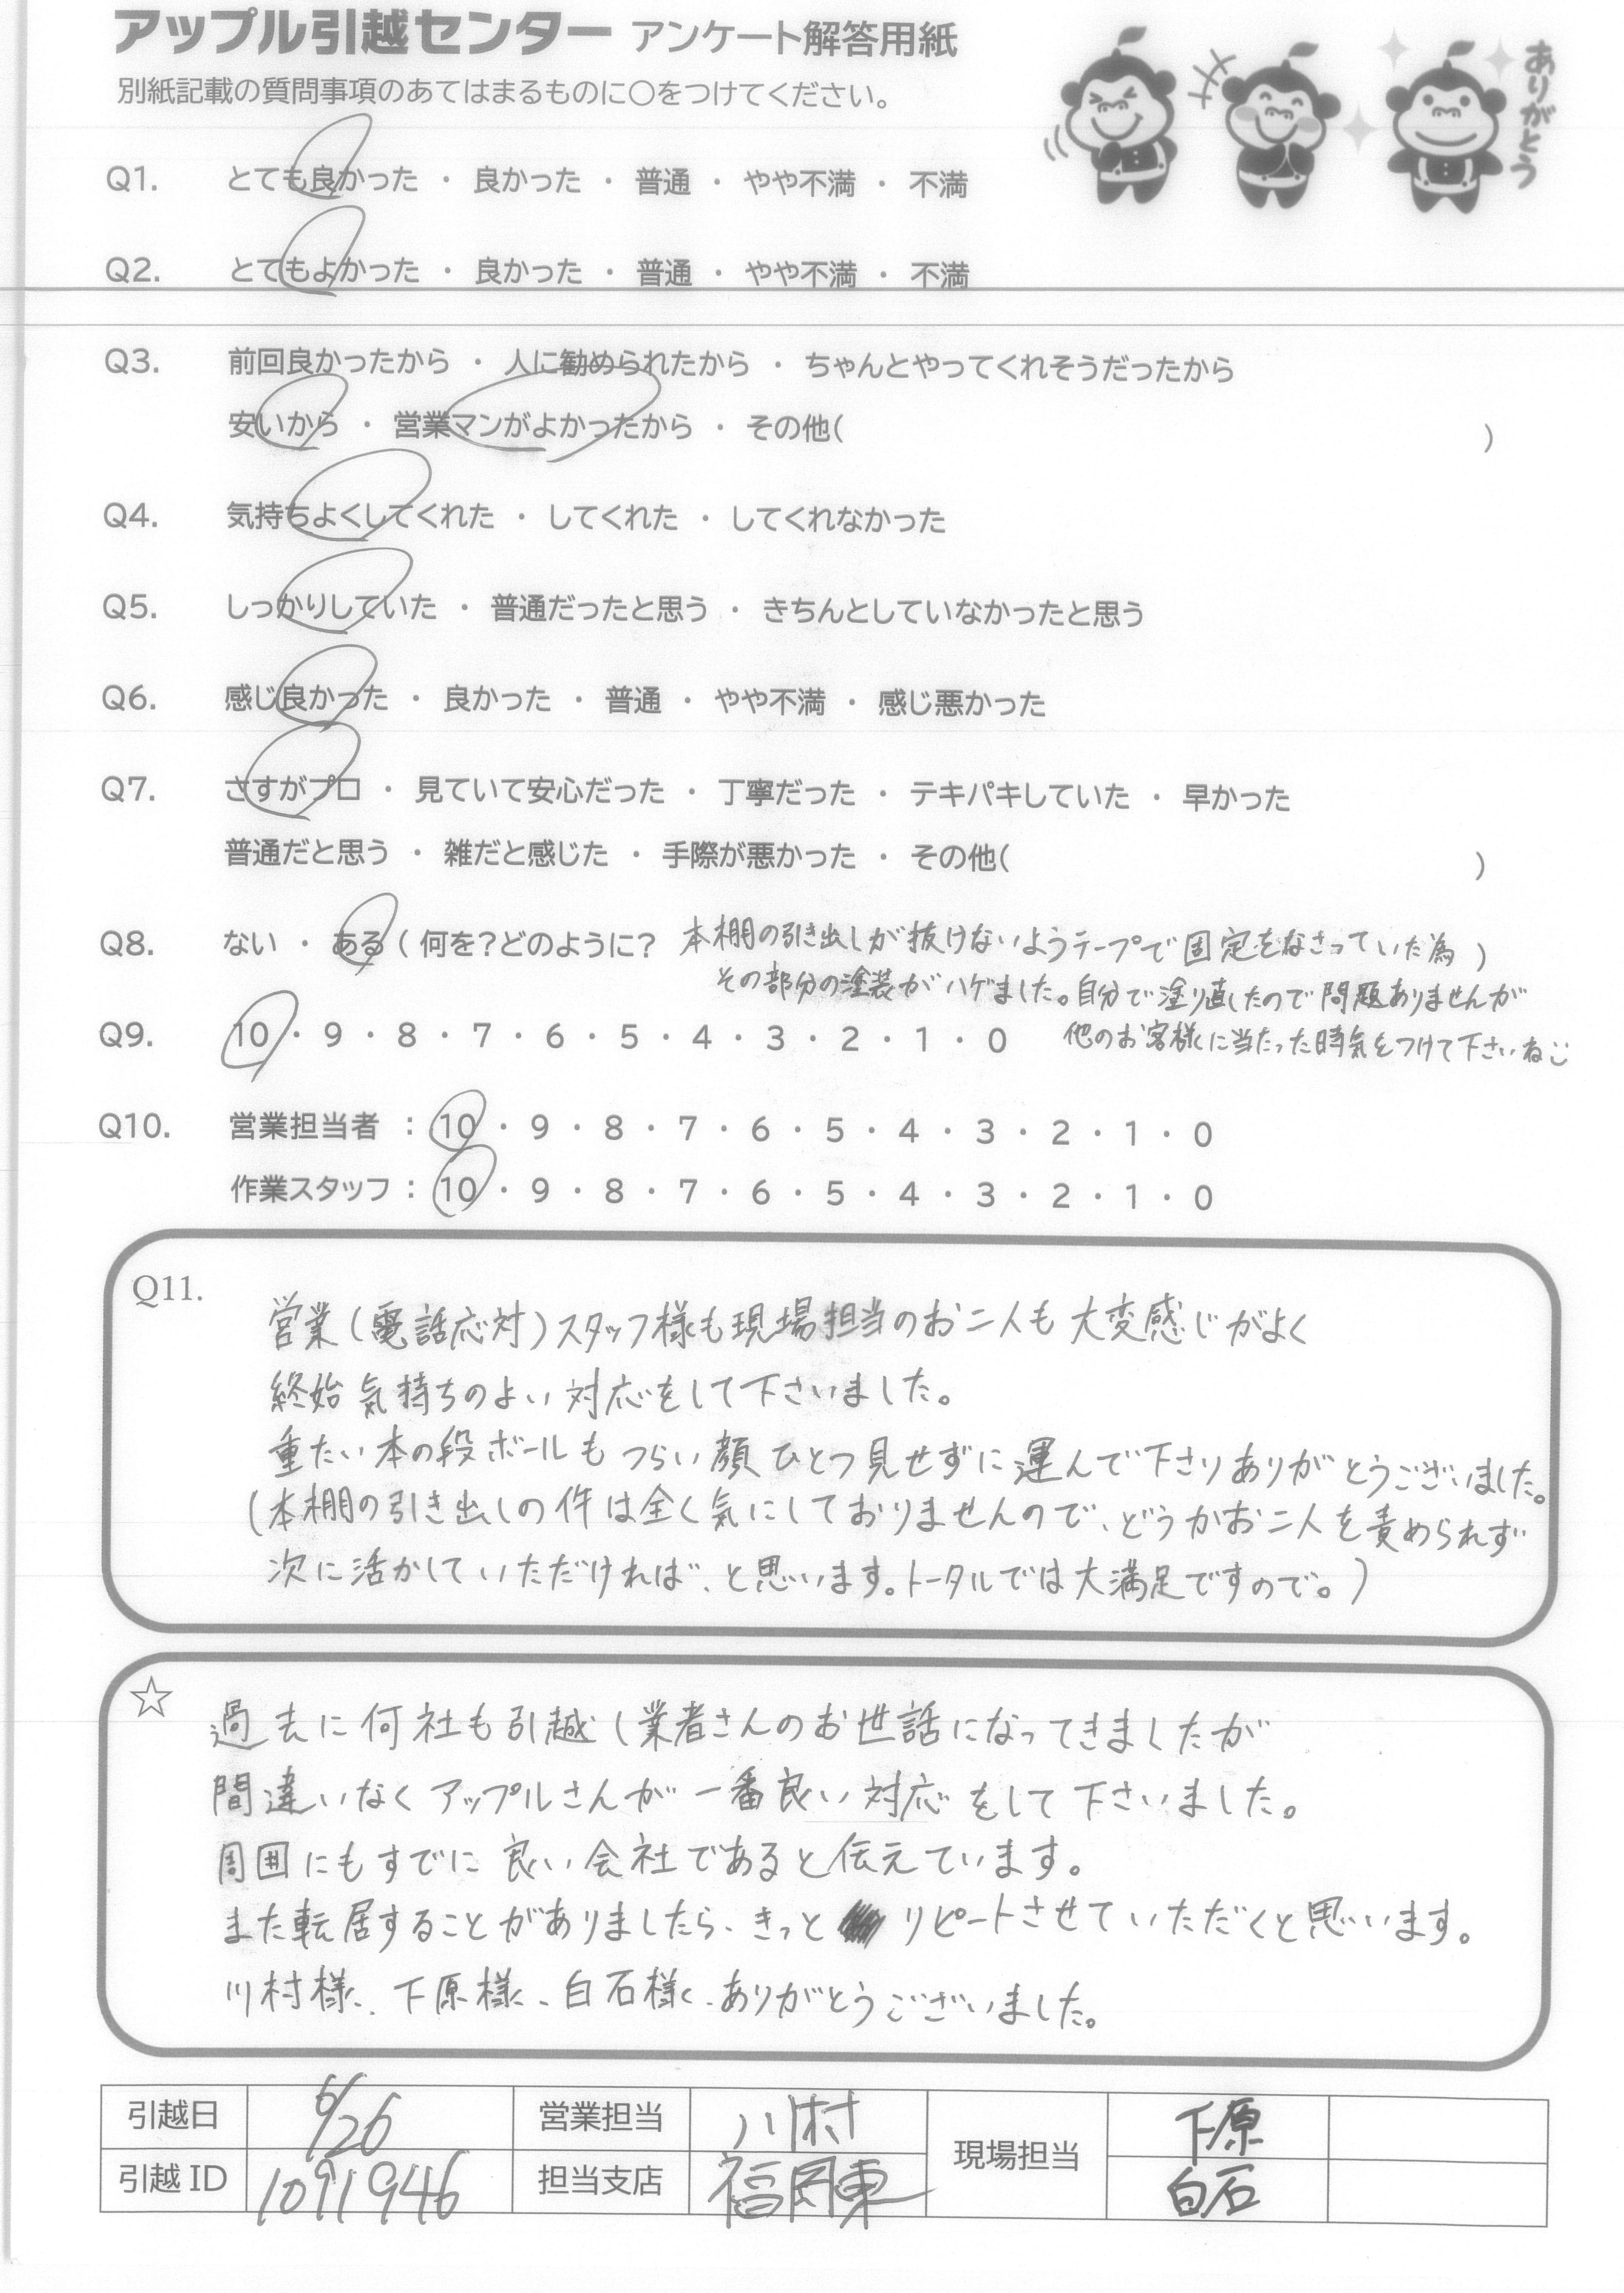 アップル引越センター アンケート解答用紙
ありがとう
別紙記載の質問事項のあてはまるものに○をつけてください。
Q1. とても良かった ・ 良かった ・ 普通 ・ やや不満 ・ 不満
Q2. とてもよかった ・ 良かった ・ 普通 ・ やや不満 ・ 不満
Q3. 前回良かったから ・ 人に勧められたから ・ ちゃんとやってくれそうだったから
安いから ・ 営業マンがよかったから ・ その他( )
Q4. 気持ちよくしてくれた ・ してくれた ・ してくれなかった
Q5. しっかりしていた ・ 普通だったと思う ・ きちんとしていなかったと思う
Q6. 感じ良かった ・ 良かった ・ 普通 ・ やや不満 ・ 感じ悪かった
Q7. さすがプロ ・ 見ていて安心だった ・ 丁寧だった ・ テキパキしていた ・ 早かった
普通だと思う ・ 雑だと感じた ・ 手際が悪かった ・ その他( )
Q8. ない ・ ある ( 何を?どのように? 本棚の引き出しが抜けないようテープで固定をなさっていた為 )
その部分の塗装がハゲました。自分で塗り直したので問題ありませんが
Q9. 10 ・ 9 ・ 8 ・ 7 ・ 6 ・ 5 ・ 4 ・ 3 ・ 2 ・ 1 ・ 0 他のお客様に当たった時気をつけて下さいね
Q10. 営業担当者 : 10 ・ 9 ・ 8 ・ 7 ・ 6 ・ 5 ・ 4 ・ 3 ・ 2 ・ 1 ・ 0
作業スタッフ : 10 ・ 9 ・ 8 ・ 7 ・ 6 ・ 5 ・ 4 ・ 3 ・ 2 ・ 1 ・ 0
Q11.
営業(電話応対)スタッフ様も現場担当のお二人も大変感じがよく
終始気持ちのよい対応をして下さいました。
重たい本の段ボールもつらい顔ひとつ見せずに運んで下さりありがとうございました。
(本棚の引き出しの件は全く気にしておりませんので、どうかお二人を責められず
次に活かしていただければ、と思います。トータルでは大満足ですので。)
☆
過去に何社も引越し業者さんのお世話になってきましたが
間違いなくアップルさんが一番良い対応をして下さいました。
周囲にもすでに良い会社であると伝えています。
また転居することがありましたら、きっとリピートさせていただくと思います。
川村様、下原様、白石様、ありがとうございました。
引越日 6/26 営業担当 川村 現場担当 下原
引越 ID 1091946 担当支店 福岡東 白石